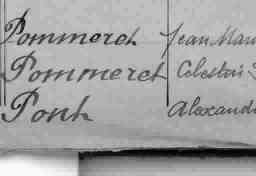 Pommeret Jean Mari
Pommeret Célestin
Pont Alexand